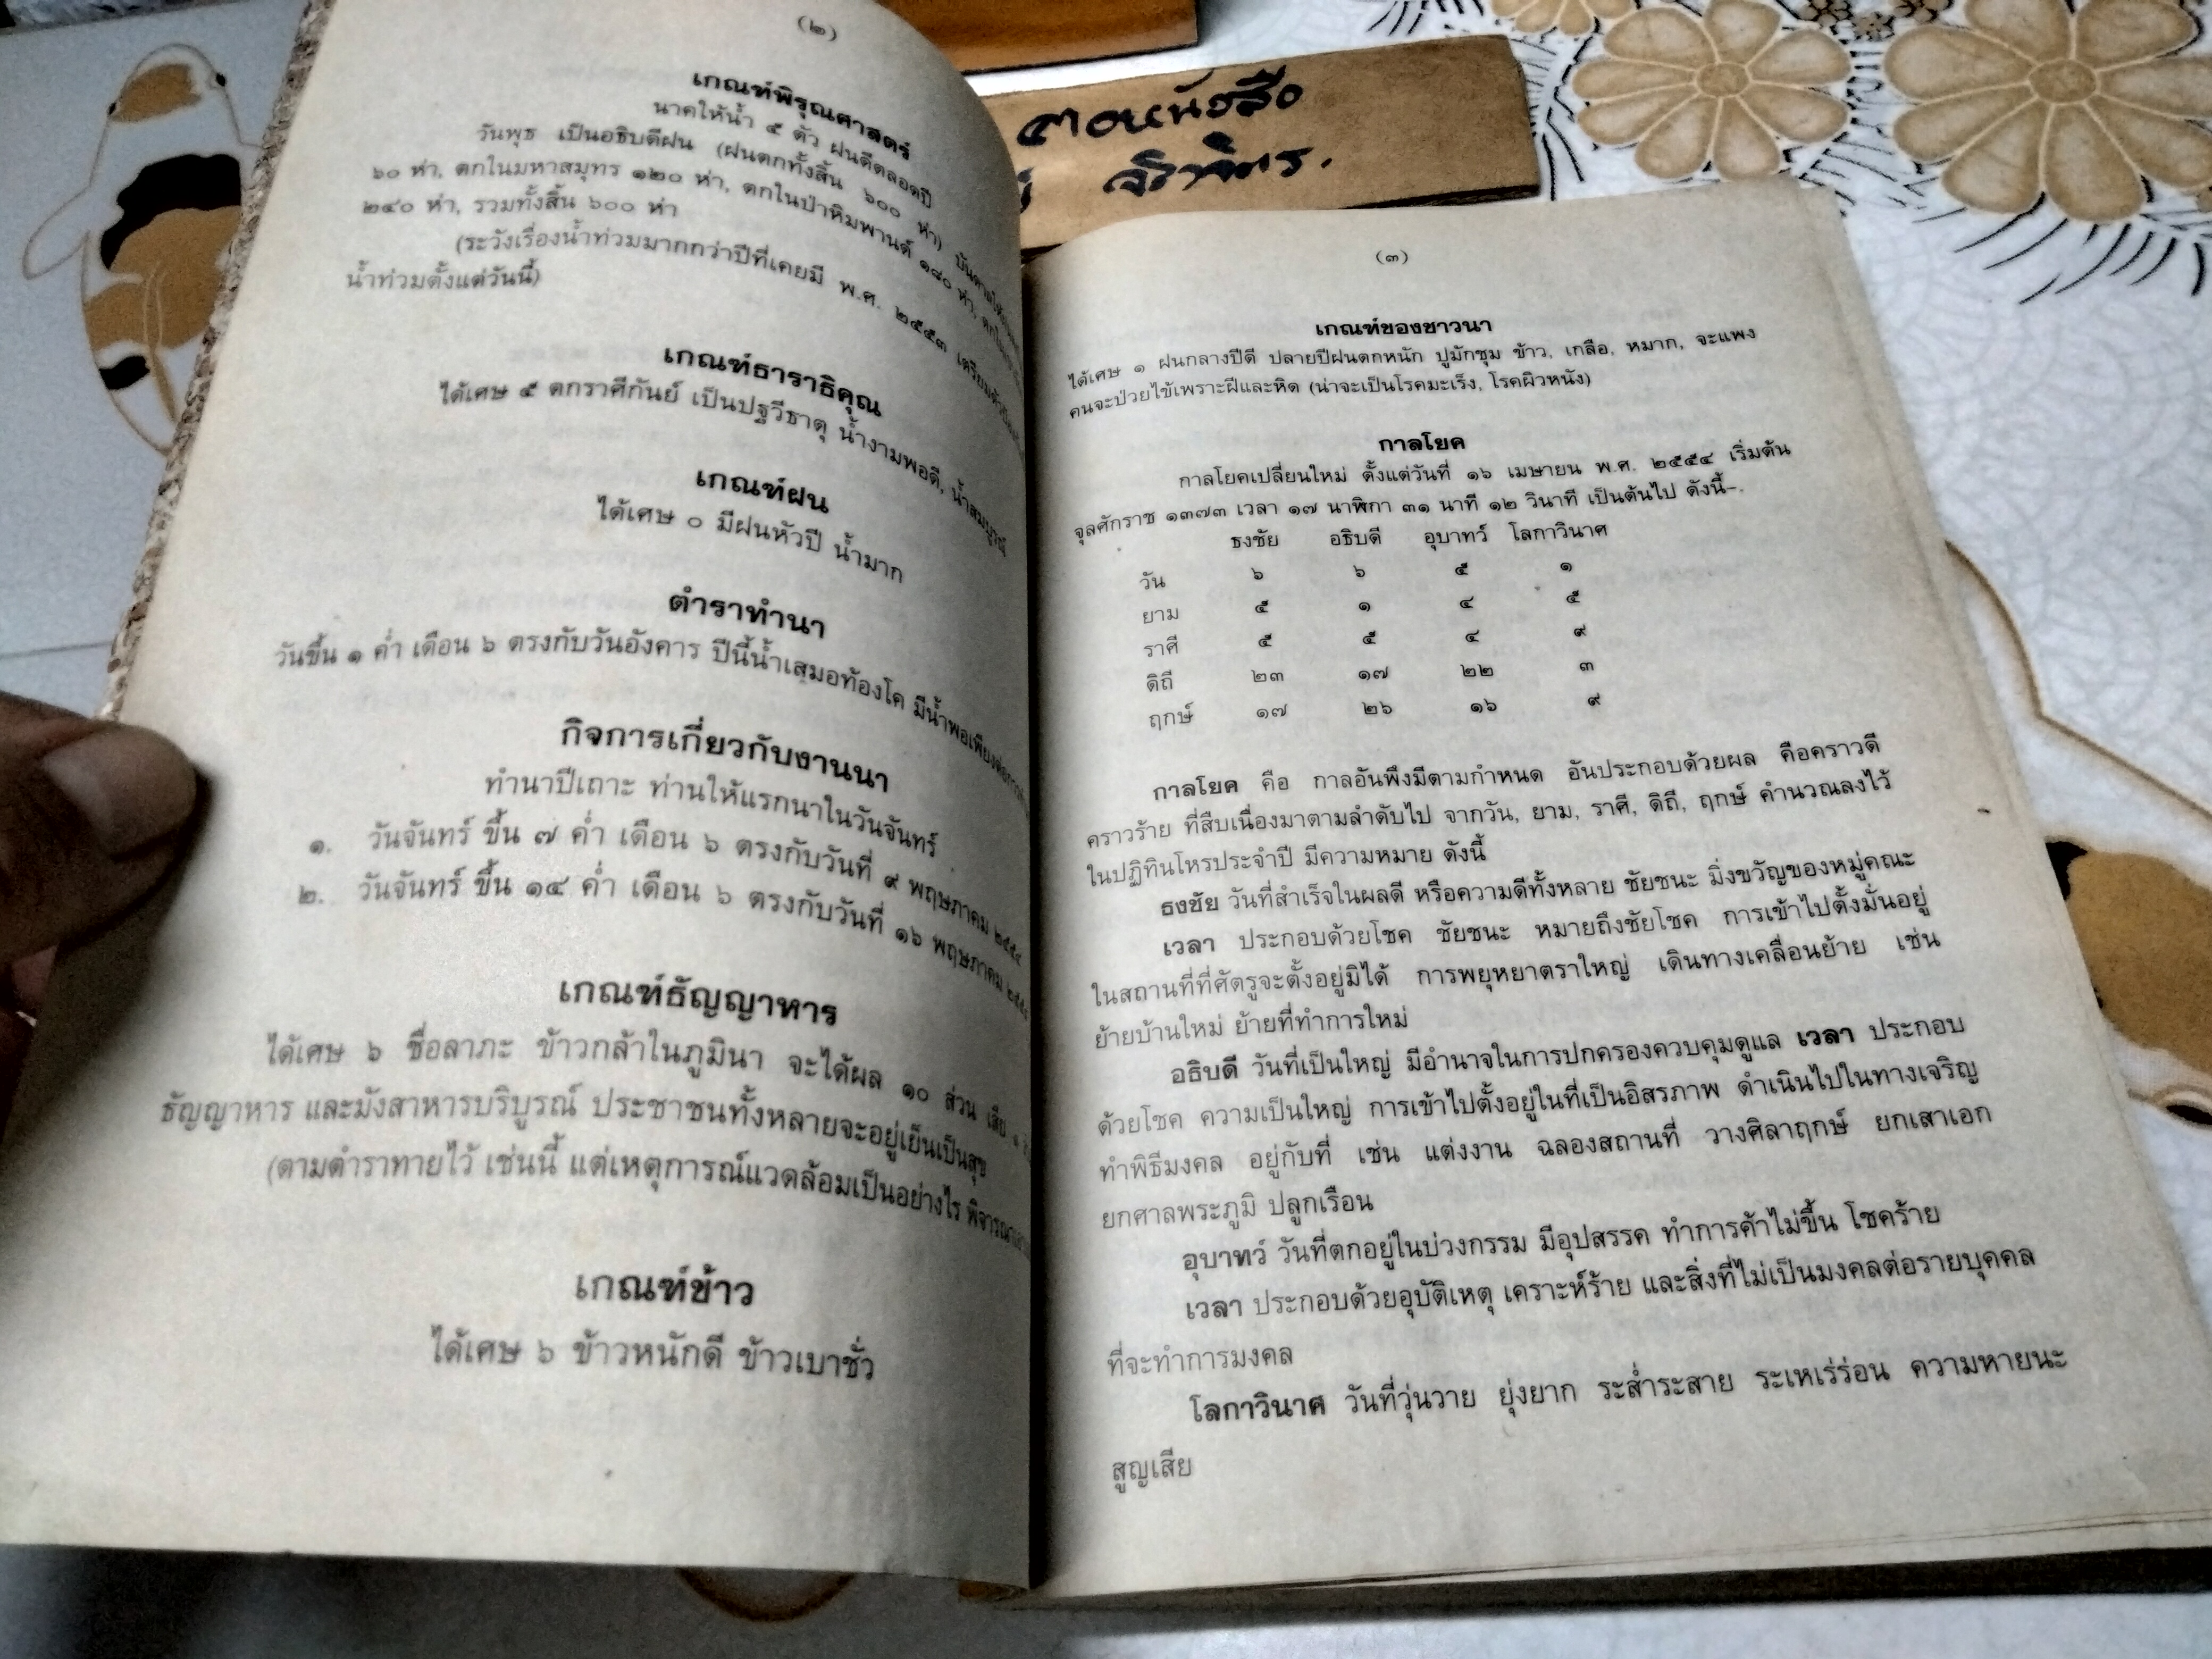 (๒)
เกณฑ์พิรุณศาสตร์
นาคให้น้ำ ๕ ตัว ฝนดีตลอดปี
วันพุธ เป็นอธิบดีฝน (ฝนตกทั้งสิ้น ๖๐๐ ห่า)
๖๐ ห่า, ตกในมหาสมุทร ๑๒๐ ห่า, ตกในป่าหิมพานต์ ๑๘๐ ห่า,
๒๔๐ ห่า, รวมทั้งสิ้น ๖๐๐ ห่า
(ระวังเรื่องน้ำท่วมมากกว่าปีที่เคยมี พ.ศ. ๒๕๕๓
น้ำท่วมตั้งแต่วันนี้)
เกณฑ์ธาราธิคุณ
ได้เศษ ๕ ตกราศีกันย์ เป็นปฐวีธาตุ น้ำงามพอดี, น้ำสมบูรณ์
เกณฑ์ฝน
ได้เศษ ๐ มีฝนหัวปี น้ำมาก
ตำราทำนา
วันขึ้น ๑ ค่ำ เดือน ๖ ตรงกับวันอังคาร ปีนี้น้ำเสมอท้องโค
กิจการเกี่ยวกับงานนา
ทำนาปีเถาะ ท่านให้แรกนาในวันจันทร์
๑. วันจันทร์ ขึ้น ๗ ค่ำ เดือน ๖ ตรงกับวันที่ ๙ พฤษภาคม ๒๕๕๔
๒. วันจันทร์ ขึ้น ๑๔ ค่ำ เดือน ๖ ตรงกับวันที่ ๑๖ พฤษภาคม ๒๕๕๔
เกณฑ์ธัญญาหาร
ได้เศษ ๖ ชื่อลาภะ ข้าวกล้าในภูมินา จะได้ผล ๑๐ ส่วน เสีย ๑
ธัญญาหาร และมังสาหารบริบูรณ์ ประชาชนทั้งหลายจะอยู่เย็นเป็นสุข
(ตามตำราทายไว้ เช่นนี้ แต่เหตุการณ์แวดล้อมเป็นอย่างไร
เกณฑ์ข้าว
ได้เศษ ๖ ข้าวหนักดี ข้าวเบาชั่ว
(๓)
เกณฑ์ของชาวนา
ได้เศษ ๑ ฝนกลางปีดี ปลายปีฝนตกหนัก ปูมักชุม ข้าว, เกลือ, หมาก, จะแพง
คนจะป่วยไข้เพราะฝีและหิด (น่าจะเป็นโรคมะเร็ง, โรคผิวหนัง)
กาลโยค
กาลโยคเปลี่ยนใหม่ ตั้งแต่วันที่ ๑๖ เมษายน พ.ศ. ๒๕๕๔ เริ่มต้น
จุลศักราช ๑๓๗๓ เวลา ๑๗ นาฬิกา ๓๑ นาที ๑๒ วินาที เป็นต้นไป ดังนี้-.
ธงชัย อธิบดี อุบาทว์ โลกาวินาศ
วัน ๖ ๖ ๕ ๑
ยาม ๕ ๑ ๔ ๕
ราศี ๕ ๕ ๔ ๙
ดิถี ๒๓ ๑๗ ๒๒ ๓
ฤกษ์ ๑๗ ๒๖ ๑๖ ๙
กาลโยค คือ กาลอันพึงมีตามกำหนด อันประกอบด้วยผล คือคราวดี
คราวร้าย ที่สืบเนื่องมาตามลำดับไป จากวัน, ยาม, ราศี, ดิถี, ฤกษ์ คำนวณลงไว้
ในปฏิทินโหรประจำปี มีความหมาย ดังนี้
ธงชัย วันที่สำเร็จในผลดี หรือความดีทั้งหลาย ชัยชนะ มิ่งขวัญของหมู่คณะ
เวลา ประกอบด้วยโชค ชัยชนะ หมายถึงชัยโชค การเข้าไปตั้งมั่นอยู่
ในสถานที่ที่ศัตรูจะตั้งอยู่มิได้ การพยุหยาตราใหญ่ เดินทางเคลื่อนย้าย เช่น
ย้ายบ้านใหม่ ย้ายที่ทำการใหม่
อธิบดี วันที่เป็นใหญ่ มีอำนาจในการปกครองควบคุมดูแล เวลา ประกอบ
ด้วยโชค ความเป็นใหญ่ การเข้าไปตั้งอยู่ในที่เป็นอิสรภาพ ดำเนินไปในทางเจริญ
ทำพิธีมงคล อยู่กับที่ เช่น แต่งงาน ฉลองสถานที่ วางศิลาฤกษ์ ยกเสาเอก
ยกศาลพระภูมิ ปลูกเรือน
อุบาทว์ วันที่ตกอยู่ในบ่วงกรรม มีอุปสรรค ทำการค้าไม่ขึ้น โชคร้าย
เวลา ประกอบด้วยอุบัติเหตุ เคราะห์ร้าย และสิ่งที่ไม่เป็นมงคลต่อรายบุคคล
ที่จะทำการมงคล
โลกาวินาศ วันที่วุ่นวาย ยุ่งยาก ระส่ำระสาย ระเหเร่ร่อน ความหายนะ
สูญเสีย